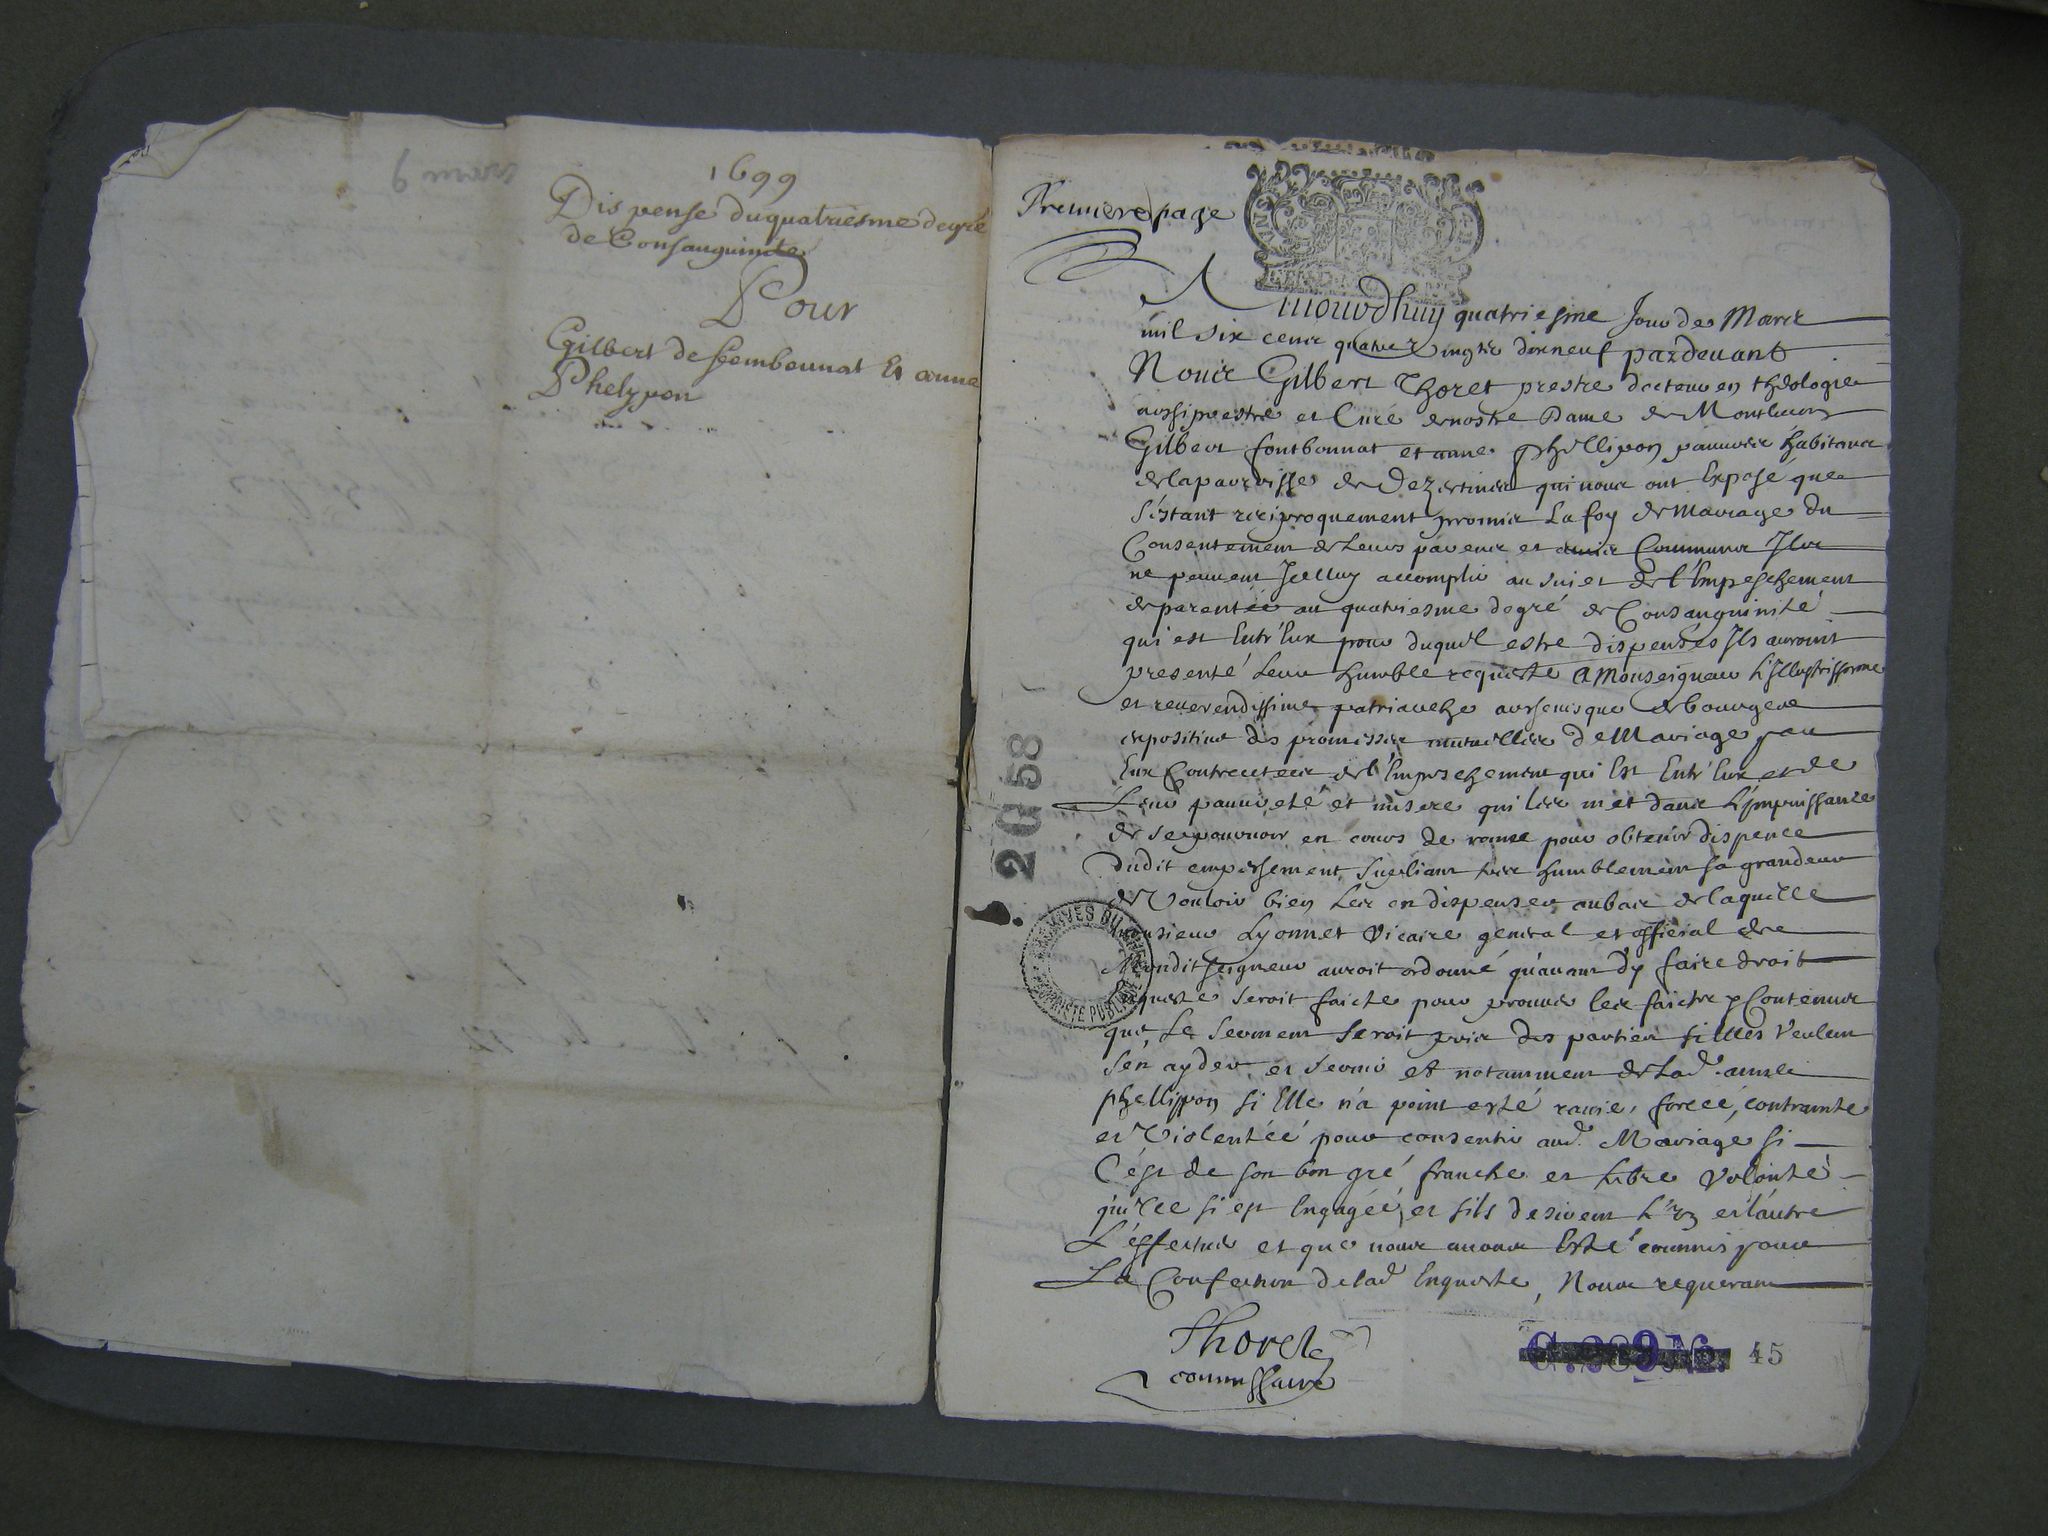 9 mars
1699
Dispense du quatriesme degré
de Consanguinite
Pour
Gilbert de fombonnat Et anne
Phelypon
Premiere page
Aujourdhuy quatriesme Jour de Mars
mil six cens quatre vingts dixneuf pardevant
Nous Gilbert Thoret prestre docteur en theologie
archiprestre et Curé de nostre Dame de Montlucon
Gilbert fontbonnat et anne phellipon pauvres habitans
de la parroisse de Dezertines qui nous ont Exposé que
s'éstant reciproquement promis La foy de mariage du
Consentement de Leurs parens et amis Communs Ils
ne peuvent Icelluy accomplir au suiet de l'Empeschement
de parentéé au quatriesme degré de Consanguinité
qui est Entr'Eux pour duquel estre dispensés Ils auroint
presenté Leur humble requeste A Monseigneur L'Illustrissime
et reverendissime patriarche archevesque de bourges
expositive des promesses mutuelles de Mariage par
Eux Contractees de l'Empeschement qui Est Entr'Eux et de
Leur pauvreté et misere qui les met dans L'impuissance
de se pourvoir en cours de rome pour obtenir dispence
dudit empeschement, supliant tres humblement sa grandeur
de Vouloir bien Les en dispenser au bas de laquelle
Monsieur Lyonnet Vicaire general et official de
Mondit seigneur auroit ordonné qu'avant d'y faire droit
Enqueste seroit faicte pour prouver les faicts y Contenus
que Le serment seroit pris des parties si Elles Veulent
s'en ayder et servir et notamment de Lad. anne
phellippon si Elle n'a point esté ravie, forcéé, contrainte
et Violentéé pour consentir aud. Mariage si
C'ést de son bon gré franche et Libre Volonté
qu'Elle si est Engagéé, et sils desirent L'un et L'autre
L'éffectuer et que nous avons Esté commis pour
La Confection de lad. Enqueste, Nous requerant
Thoret
commissaire
2G 58
ARCHIVES DU CHER
PROPRIETE PUBLIQUE
45